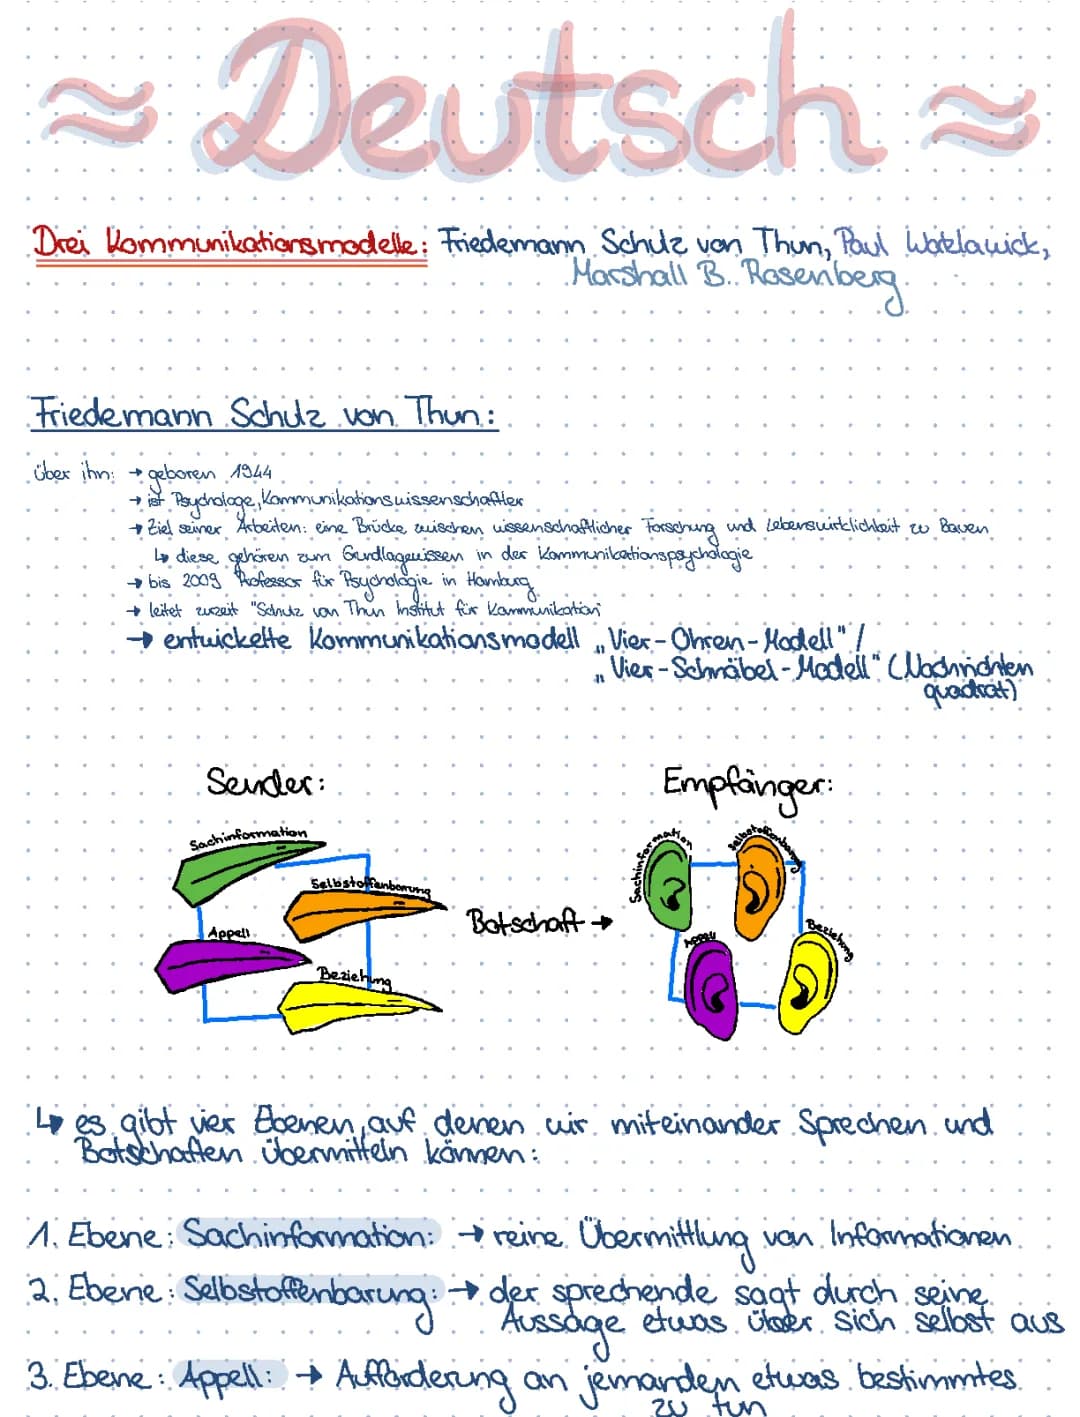 ≈ Deutsch ≈
Drei Kommunikationsmodelle: Friedemann Schulz von Thun, Paul Watzlawick,
Marshall B. Rosenberg
Friedemann Schulz von Thun:
über ihn: → geboren 1944
→ ist Psychologe, Kommunikationswissenschaftler
→ Ziel seiner Arbeiten: eine Brücke zwischen wissenschaftlicher Forschung und Lebenswirklichkeit zu Bauen
↳ diese gehören zum Gurdlagewissen in der Kommunikationspsychologie
→ bis 2009 Professor für Psychologie in Hamburg
→ leitet zurzeit "Schulz von Thun Institut für Kommunikation
→ entwickelte Kommunikationsmodell „Vier-Ohren-Modell" /
„Vier-Schnäbel-Modell" (Nachrichten
quadrat)
Sender:
Empfänger:
Sachinformation
Selbstoffenbarung
Appell
Beziehung
Botschaft →
Sachinformation
Selbstoffenbarung
Appell
Beziehung
↳ es gibt vier Ebenen, auf denen wir miteinander Sprechen und
Botschaften übermitteln können:
1. Ebene: Sachinformation: → reine Übermittlung von Informationen
2. Ebene: Selbstoffenbarung: → der sprechende sagt durch seine
Aussage etwas über sich selbst aus
3. Ebene: Appell: → Aufforderung an jemanden etwas bestimmtes
zu tun